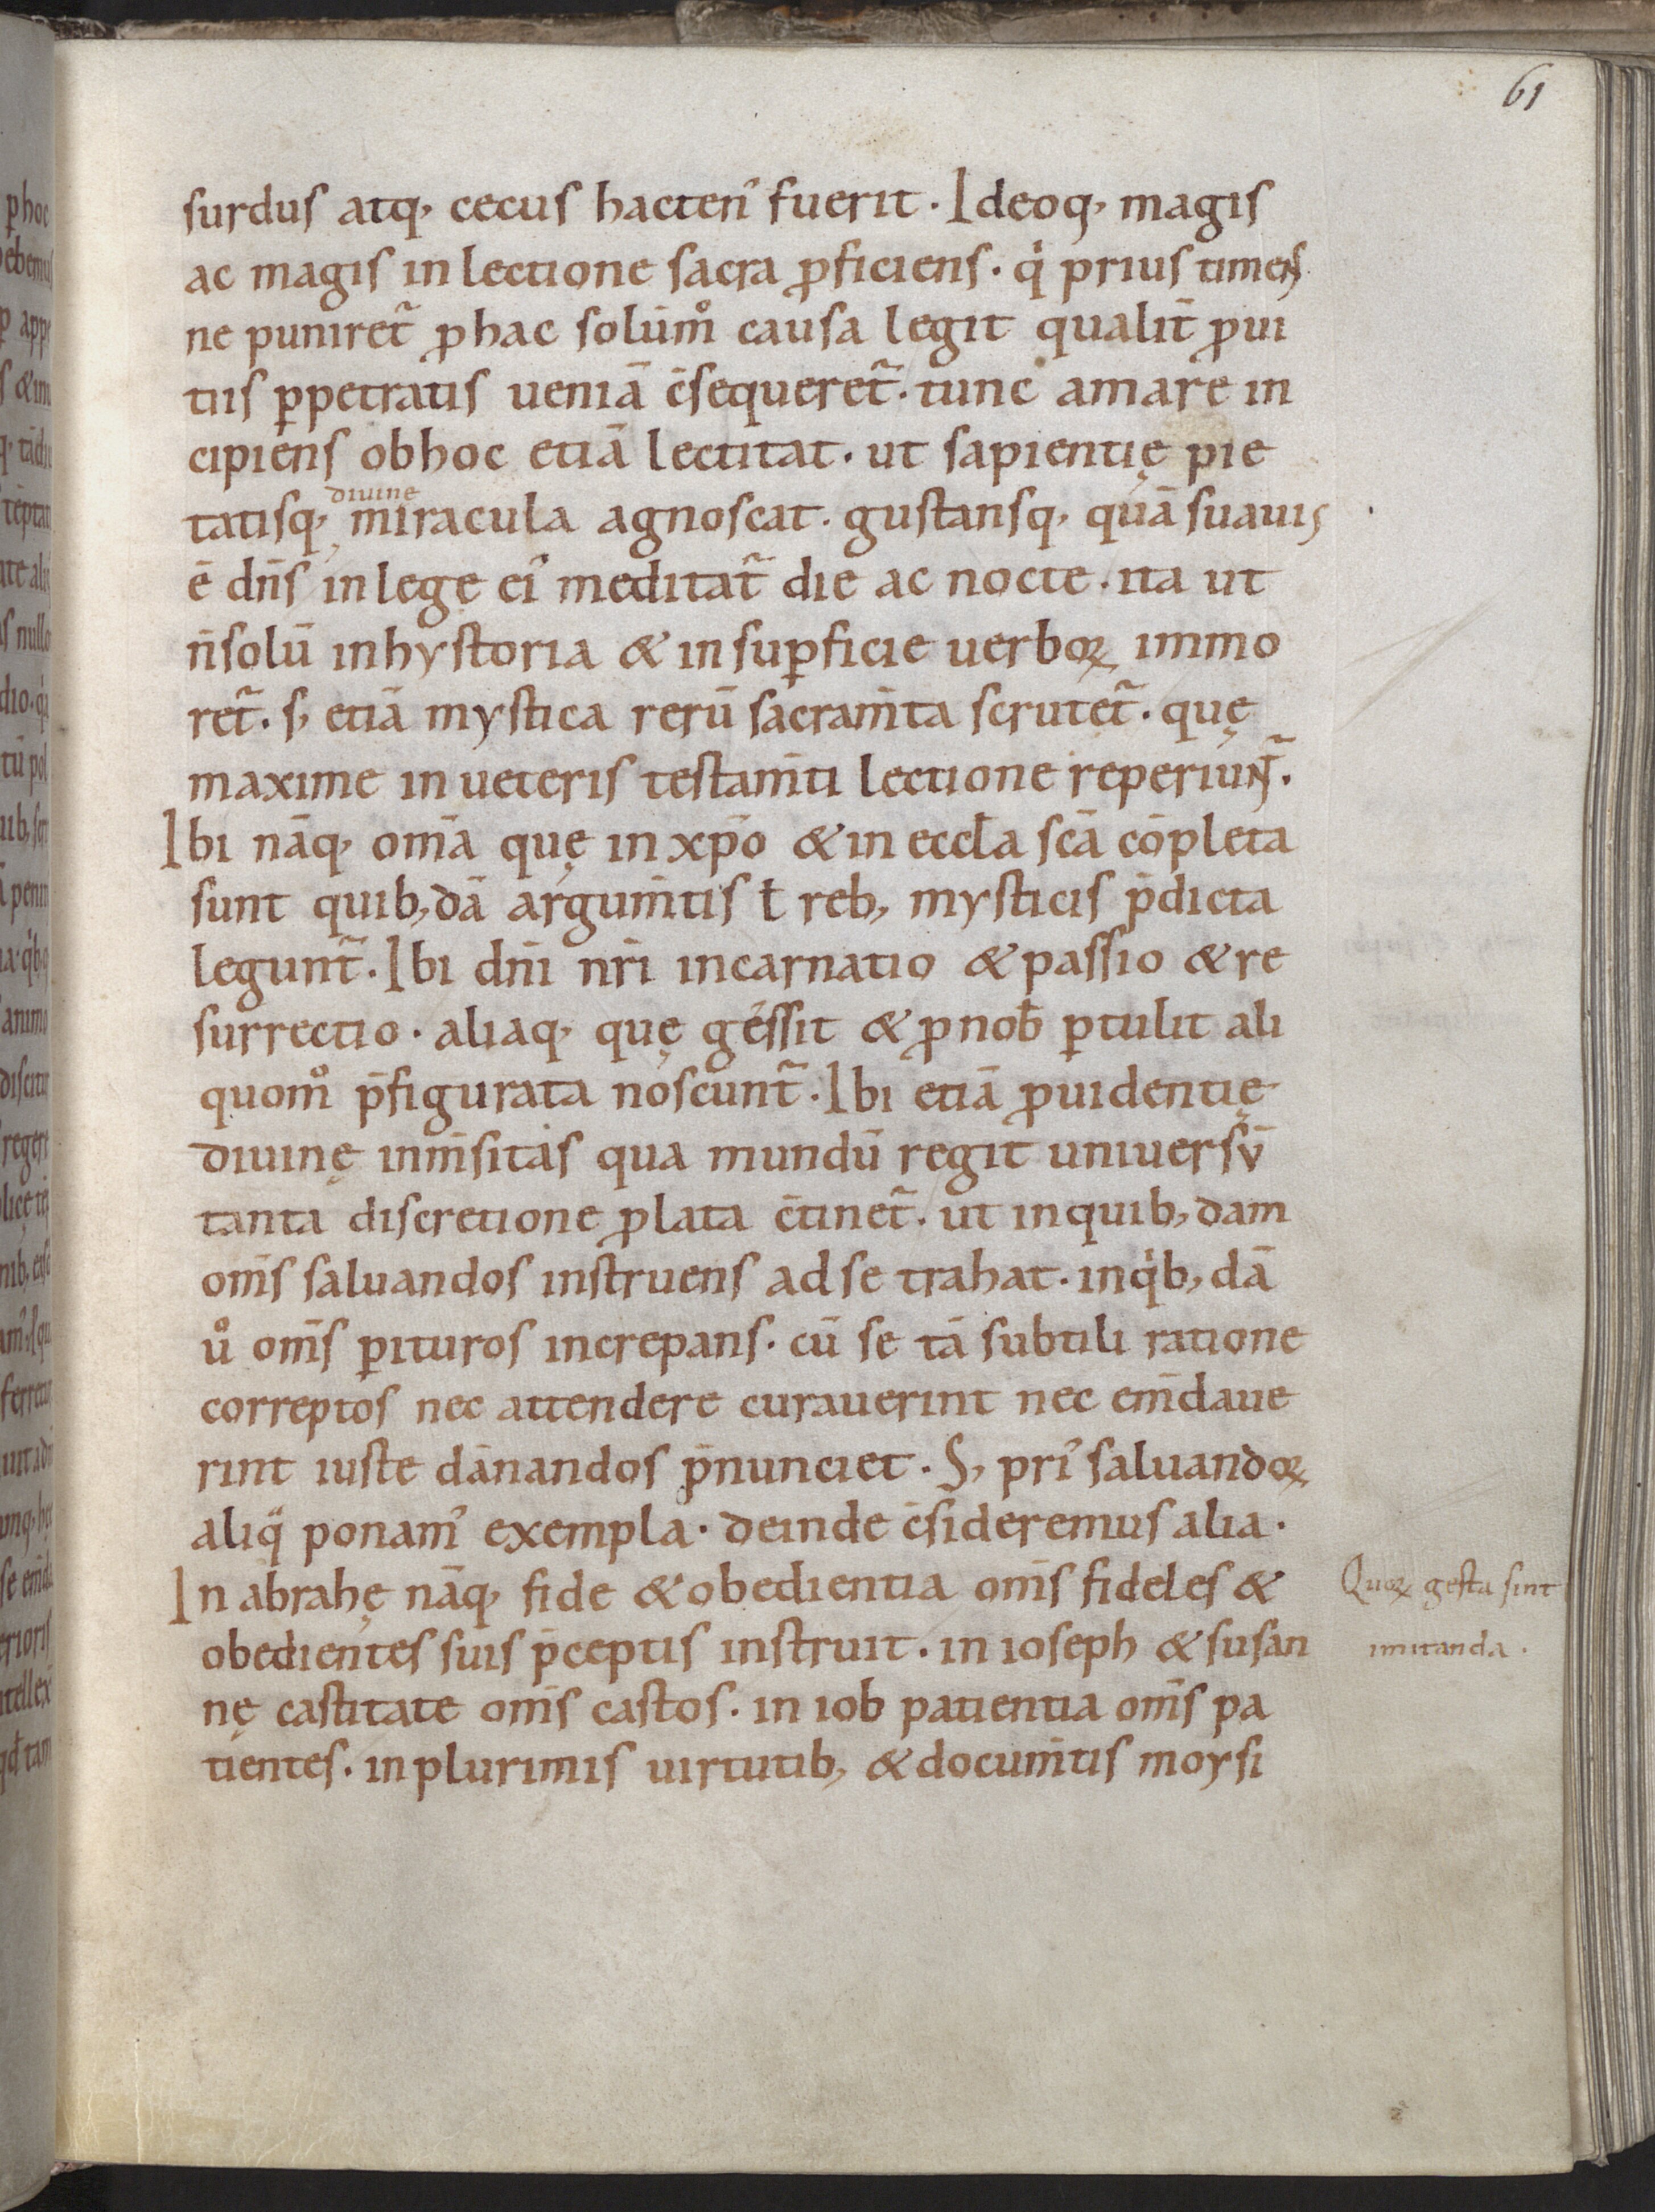 61
surdus atq; cecus hacten᾽ fuerit . Ideoq; magis
ac magis in lectione sacra ꝓficiens . qͥ prius timens
ne puniret᷑ ꝓ hac solūm̊ causa legit qualit̄ ꝓ ui
tiis ꝑpetratis ueniā c̄sequeret᷑ . tunc amare in
cipiens ob hoc etiā lectitat . ut sapientię pie
tatisq; divinę miracula agnoscat . gustansq; quā suauis
ē dn̄s in lege ei᾽ meditat᷑ die ac nocte . ita ut
n̄ solū in hystoria & in suꝑficie uerboꝝ immo
ret᷑ . s; etiā mystica rerū sacram̄ta scrutet᷑ . quę
maxime in ueteris testam̄ti lectione reperiunt᷑ .
Ibi nāq; om̄a quę in xp̄o & in eccl̄a scā cōpleta
sunt quib; dā argum̄tis ł reb; mysticis p̄dicta
legunt᷑ . Ibi dn̄i nr̄i incarnatio & passio & re
surrectio . aliaq; quę gessit & ꝓ nob̄ ꝑtulit ali
quom̊ p̄figurata noscunt᷑ . Ibi etiā ꝓuidentię
diuinę inm̄sitas qua mundū regit uniuersū
tanta discretione ꝓlata c̄tinet᷑ . ut in quib; dam
om̄s saluandos instruens ad se trahat . in qͥb; dā
ů om̄s ꝑituros increpans . cū se tā subtili ratione
correptos nec attendere curauerint nec em̄daue
rint iuste dānandos p̄nunciet . S; pri᾽ saluandoꝝ
aliqͣ ponam᾽ exempla . deinde c̄sideremus alia .
In abrahę nāq; fide & obedientia om̄s fideles &
obedientes suis p̄ceptis instruit . in ioseph & susan
nę castitate om̄s castos . in iob patientia om̄s pa
tientes . in plurimis uirtutib; & docum̄tis moysi
Quoꝝ gesta sint
imitanda .